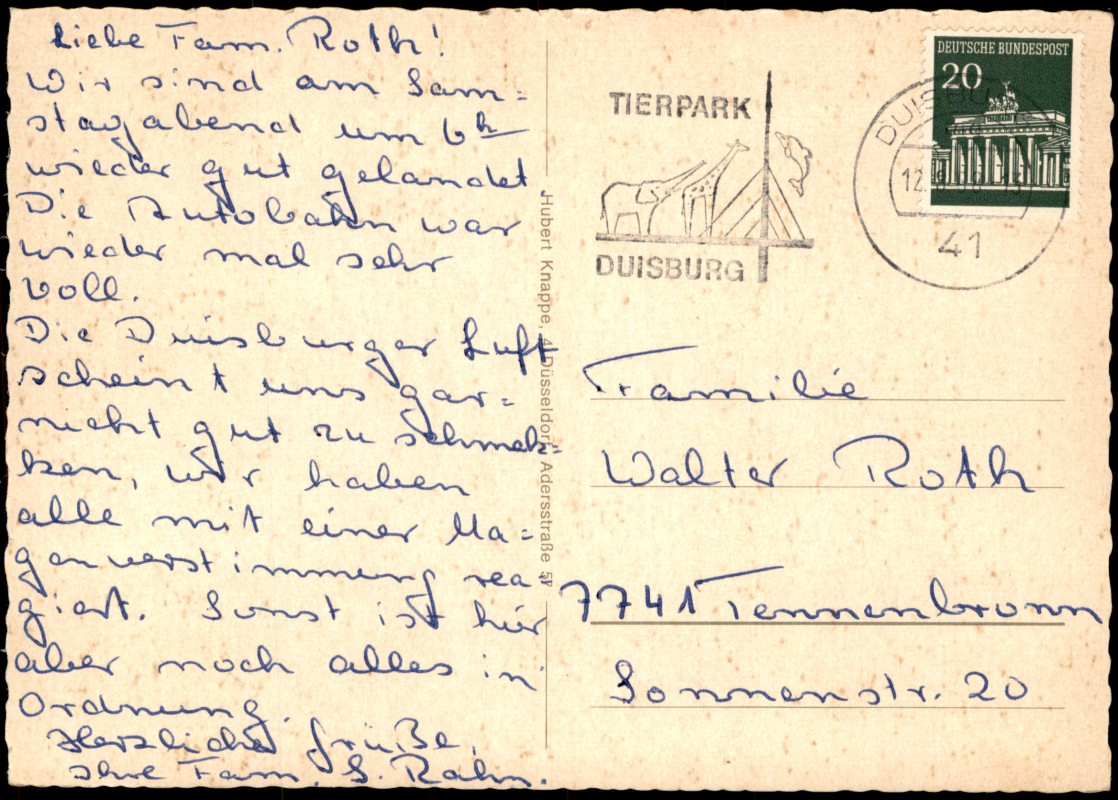 Liebe Fam. Roth!
Wir sind am Sam=
stagabend um 6h
wieder gut gelandet.
Die Autobahn war
wieder mal sehr
voll.
Die Duisburger Luft
scheint uns gar=
nicht gut zu schmek=
ken, wir haben
alle mit einer Ma=
genverstimmung rea
giert. Sonst ist hier
aber noch alles in
Ordnung.
Herzliche Grüße,
Ihre Fam. S. Rahn.
Hubert Knappe, 4 Düsseldorf, Adersstraße
TIERPARK
DUISBURG
DUISBURG
12.
41
DEUTSCHE BUNDESPOST
20
Familie
Walter Roth
7741 Tennenbronn
Sonnenstr. 20